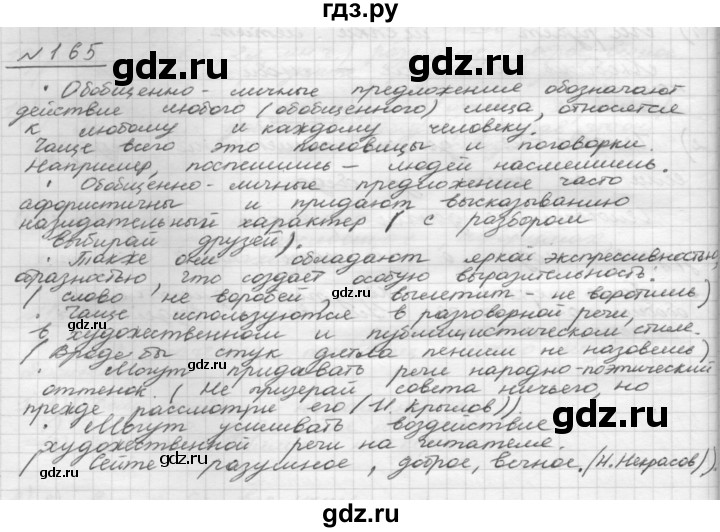 гдз.ру
№165
• Обобщенно-личные предложение обозначают
действие любого (обобщенного) лица, относятся
к любому и каждому человеку.
Чаще всего это пословицы и поговорки.
Например, поспешишь – людей насмешишь.
• Обобщенно-личные предложение часто
афористичны и придают высказыванию
назидательный характер ( с разбором
выбирай друзей).
• Также они обладают яркой экспрессивностью,
образностью, что создает особую выразительность.
( слово не воробей, вылетит - не воротишь)
• Чаще используются в разговорной речи,
в художественном и публицистическом стиле.
( Вроде бы стук дятла пением не назовешь)
• Могут придавать речи народно-поэтический
оттенок. ( Не презирай совета ничьего, но
прежде рассмотри его (И. Крылов))
• Могут усиливать воздействие
художественной речи на читателе.
( Сейте разумное, доброе, вечное. (Н. Некрасов)).
gdz.ru gdz.ru gdz.ru
gdz.ru gdz.ru gdz.ru
gdz.ru gdz.ru gdz.ru
gdz.ru gdz.ru gdz.ru